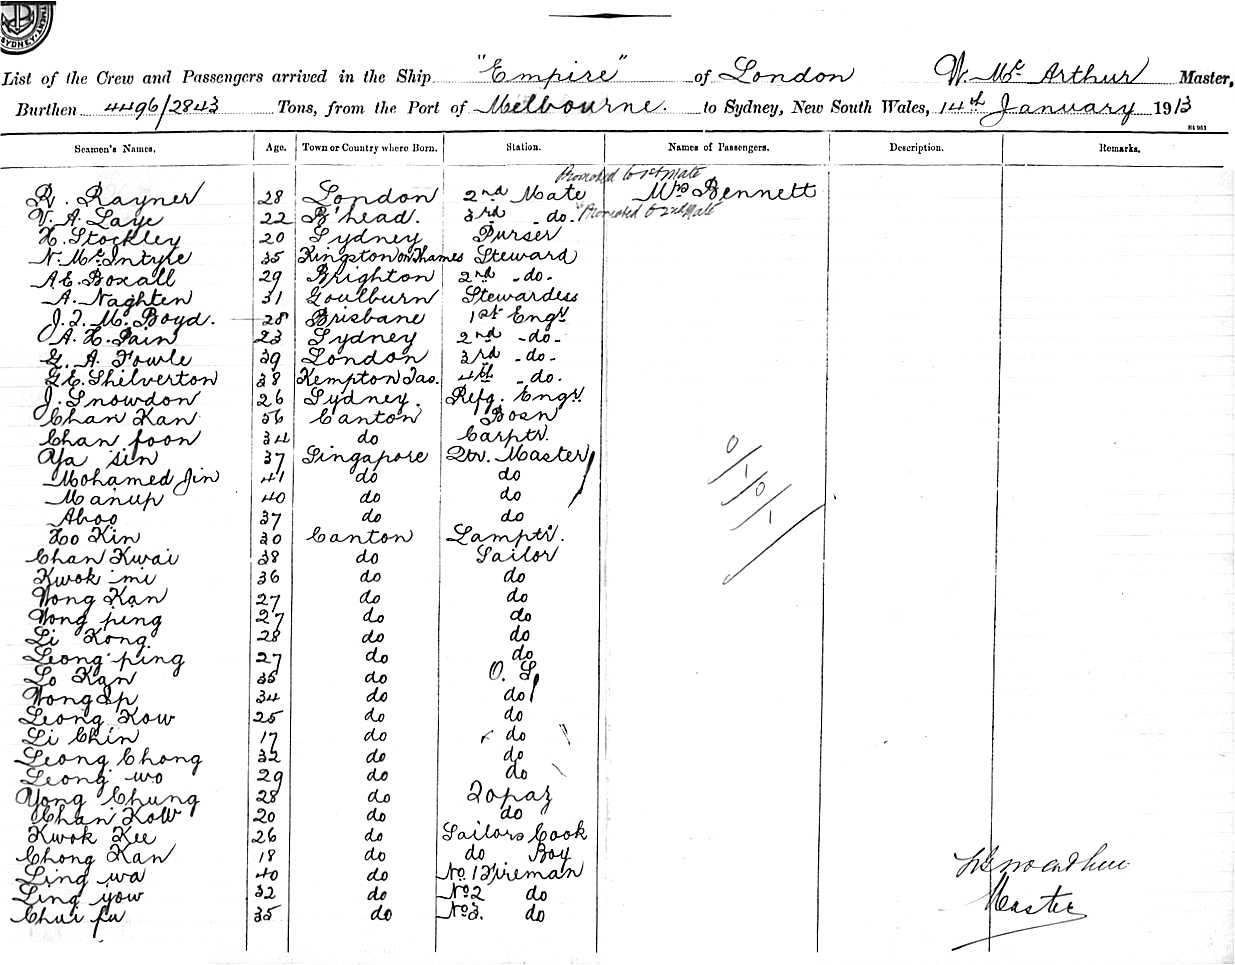 SYDNEY
List of the Crew and Passengers arrived in the Ship "Empire" of London W. McArthur Master,
Burthen 4496/2843 Tons, from the Port of Melbourne. to Sydney, New South Wales, 14th January 1913
Seamen's Names. Age. Town or Country where Born. Station. Names of Passengers. Description. Remarks.
Promoted to 1st Mate
R. Rayner 28 London 2nd Mate Mrs Bennett
V. A. Laye 22 B'head. 3rd do. "Promoted to 2nd Mate
H. Stockley 20 Sydney Purser
N. McIntyre 35 Kingston on Thames Steward
A E. Boxall 29 Brighton 2nd - do -
A. Naghten 31 Goulburn Stewardess
J. J. M. Boyd. 28 Brisbane 1st Engr.
A. H. Pain 23 Sydney 2nd - do -
G. A. Fowle 39 London 3rd - do -
G. E. Shilverton 38 Kempton Tas. 4th - do.
J. Snowdon 26 Sydney. Refg. Engr.
Chan Kan 56 Canton Bosn
Chan foon 34 do Carptr.
Ya sin 37 Singapore Qtr. Master
Mohamed Jin 41 do do
Manup 40 do do
Ahoo 37 do do
Ho Kin 30 Canton Lamptr.
Chan Kwai 38 do Sailor
Kwok mi 36 do do
Wong Kan 27 do do
Wong ping 27 do do
Li Kong 28 do do
Leong ping 27 do do
Lo Kan 35 do O. S.
Wong Ip 34 do do
Leong Kow 25 do do
Li Chin 17 do do
Leong Chong 32 do do
Leong wo 29 do do
Yong Chung 28 do Topaz
Chan Kow 20 do do
Kwok Kee 26 do Sailors Cook
Chong Kan 18 do do Boy
Ling wa 40 do No. 1 Fireman
Ling yow 32 do No 2 do
Chui fu 35 do No 3. do
Master